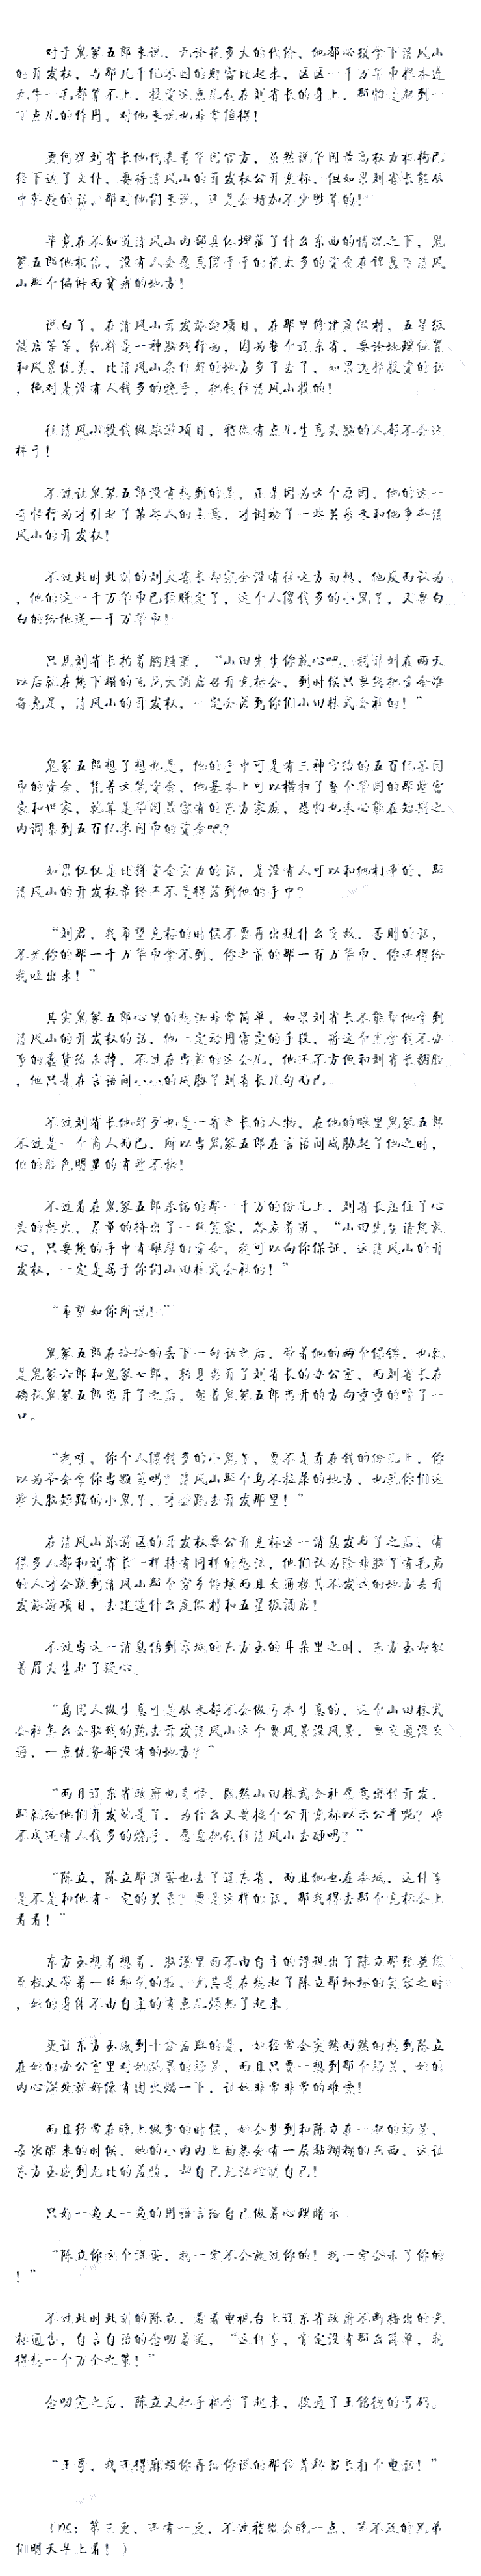 对于鬼冢五郎来说，无论花多大的代价，他都必须拿下清风山
的开发权，与那几千亿米国的财富比起来，区区一千万华币根本连
九牛一毛都算不上，投资这点儿钱在刘省长的身上，那怕是起到一
丁点儿的作用，对他来说也非常值得！
更何况刘省长他代表着华国官方，虽然说华国最高权力机构已
经下达了文件，要将清风山的开发权公开竞标，但如果刘省长能从
中斡旋的话，那对他们来说，还是会增加不少胜算的！
毕竟在不知道清风山内部具体埋藏了什么东西的情况之下，鬼
冢五郎他相信，没有人会愿意傻乎乎的花太多的资金在锦盘市清风
山那个偏僻而贫瘠的地方！
说白了，在清风山开发旅游项目，在那里修建度假村、五星级
酒店等等，纯粹是一种脑残行为，因为整个辽东省，要论地理位置
和风景优美，比清风山条件好的地方多了去了，如果选择投资的话
，绝对是没有人钱多的烧手，把钱往清风山投的！
往清风山投钱做旅游项目，稍微有点儿生意头脑的人都不会这
样干！
不过让鬼冢五郎没有想到的是，正是因为这个原因，他的这一
奇怪行为才引起了某些人的注意，才调动了一些关系来和他争夺清
风山的开发权！
不过此时此刻的刘大省长却完全没有往这方面想，他反而认为
，他的这一千万华币已经赚定了，这个人傻钱多的小鬼子，又要白
白的给他送一千万华币！
只见刘省长拍着胸脯道，“山田先生你放心吧，我计划在两天
以后就在您下榻的飞龙大酒店召开竞标会，到时候只要您把资金准
备充足，清风山的开发权，一定会落到你们山田株式会社的！”
鬼冢五郎想了想也是，他的手中可是有三神宫给的五百亿米国
币的资金，凭着这笔资金，他基本上可以横扫了整个华国的那些富
豪和世家，就算是华国最富有的东方家族，恐怕也未必能在短期之
内调集到五百亿米国币的资金吧？
如果仅仅是比拼资金实力的话，是没有人可以和他相争的，那
清风山的开发权最终还不是得落到他的手中？
“刘君，我希望竞标的时候不要再出现什么变故，否则的话，
不光你的那一千万华币拿不到，你之前的那一百万华币，你还得给
我吐出来！”
其实鬼冢五郎心里的想法非常简单，如果刘省长不能帮他拿到
清风山的开发权的话，他一定动用雷霆的手段，将这个光拿钱不办
事的蠢货给杀掉，不过在当前的这会儿，他还不方便和刘省长翻脸
，他只是在言语间小小的威胁了刘省长几句而已。
不过刘省长他好歹也是一省之长的人物，在他的眼里鬼冢五郎
不过是一个商人而已，所以当鬼冢五郎在言语间威胁起了他之时，
他的脸色明显的有些不快！
不过看在鬼冢五郎承诺的那一千万的份儿上，刘省长压住了心
头的怒火，尽量的挤出了一丝笑容，答应着道，“山田先生请您放
心，只要您的手中有雄厚的资金，我可以向你保证，这清风山的开
发权，一定是属于你们山田株式会社的！”
“希望如你所说！”
鬼冢五郎在冷冷的丢下一句话之后，带着他的两个保镖，也就
是鬼冢六郎和鬼冢七郎，转身离开了刘省长的办公室，而刘省长在
确认鬼冢五郎离开了之后，朝着鬼冢五郎离开的方向重重的啐了一
口。
“我呸，你个人傻钱多的小鬼子，要不是看在钱的份儿上，你
以为爷会拿你当颗葱吗？清风山那个鸟不拉屎的地方，也就你们这
些大脑短路的小鬼子，才会跑去开发那里！”
在清风山旅游区的开发权要公开竞标这一消息发布了之后，有
很多人都和刘省长一样持有同样的想法，他们认为除非脑子有毛病
的人才会跑到清风山那个穷乡僻壤而且交通极其不发达的地方去开
发旅游项目，去建造什么度假村和五星级酒店！
不过当这一消息传到京城的东方玉的耳朵里之时，东方玉却皱
着眉头生起了疑心。
“岛国人做生意可是从来都不会做亏本生意的，这个山田株式
会社怎么会脑残的跑去开发清风山这个要风景没风景，要交通没交
通，一点优势都没有的地方？”
“而且辽东省政府也奇怪，既然山田株式会社愿意出钱开发，
那就给他们开发就是了，为什么又要搞个公开竞标以示公平呢？难
不成还有人钱多的烧手，愿意把钱往清风山去砸吗？”
“陈立，陈立那混蛋也去了辽东省，而且他也在奉城，这件事
是不是和他有一定的关系？要是这样的话，那我得去那个竞标会上
看看！”
东方玉想着想着，脑海里面不由自主的浮现出了陈立那张英俊
至极又带着一丝邪气的脸，尤其是在想起了陈立那坏坏的笑容之时
，她的身体不由自主的有点儿燥热了起来。
更让东方玉感到十分羞耻的是，她经常会突然而然的想到陈立
在她的办公室里对她施暴的场景，而且只要一想到那个场景，她的
内心深处就好像有团火焰一下，让她非常非常的难受！
而且经常在晚上做梦的时候，她会梦到和陈立在一起的场景，
每次醒来的时候，她的小内内上面总会有一层黏糊糊的东西，这让
东方玉感到无比的羞愤，却自己无法控制自己！
只好一遍又一遍的用语言给自己做着心理暗示。
“陈立你这个混蛋，我一定不会放过你的！我一定会杀了你的
！”
不过此时此刻的陈立，看着电视台上辽东省政府不断播出的竞
标通告，自言自语的念叨着道，“这件事，肯定没有那么简单，我
得想一个万全之策！”
念叨完之后，陈立又把手机拿了起来，拨通了王铭德的号码。
“王哥，我还得麻烦你再给你说的那位省秘书长打个电话！”
（PS：第三更，还有一更，不过稍微会晚一点，等不及的兄弟
们明天早上看！）